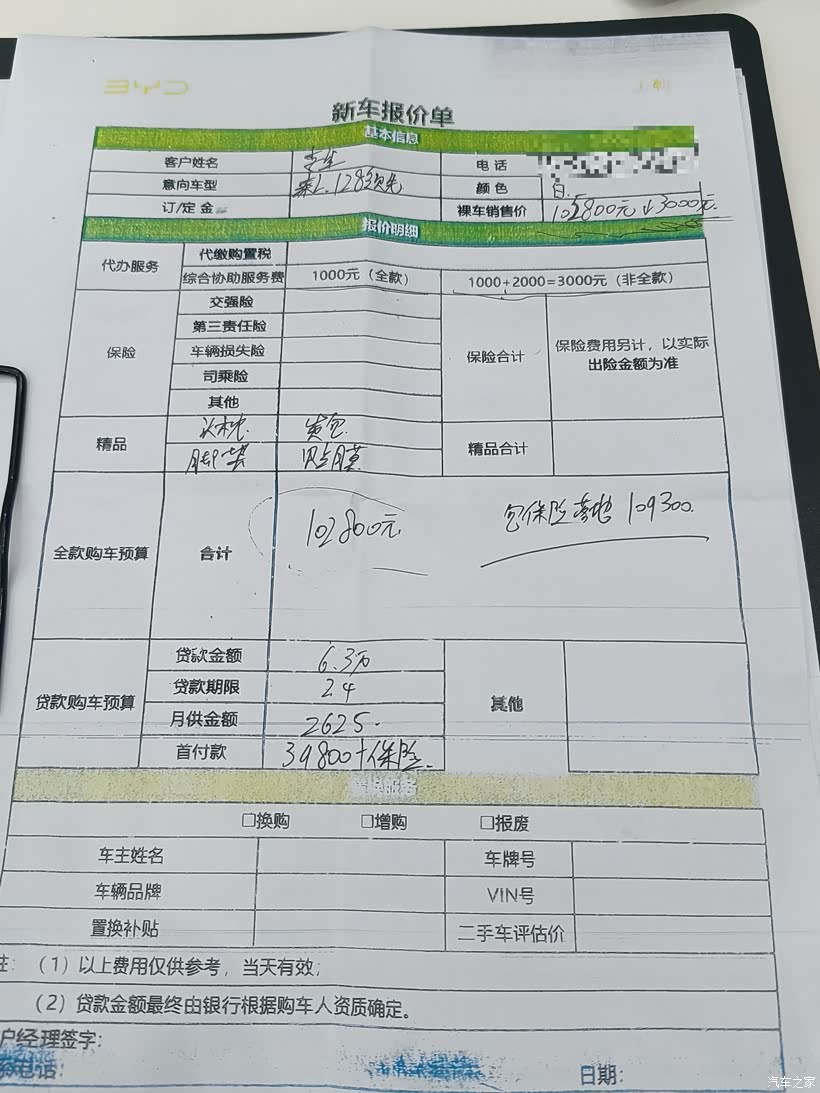 BYD
新车报价单
基本信息
客户姓名 李生 电话
意向车型 秦L 128领先 颜色 白.
订/定金 裸车销售价 105800元↓3000元.
报价明细
代办服务 代缴购置税
综合协助服务费 1000元（全款） 1000+2000=3000元（非全款）
保险 交强险
第三责任险
车辆损失险 保险合计 保险费用另计，以实际
司乘险 出险金额为准
其他
精品 头枕. 龙包. 精品合计
脚垫 贴膜
全款购车预算 合计 102800元. 包保险落地 109300.
贷款购车预算 贷款金额 6.3万 其他
贷款期限 24
月供金额 2625.
首付款 39800+保险.
置换服务
□换购 □增购 □报废
车主姓名 车牌号
车辆品牌 VIN号
置换补贴 二手车评估价
注：（1）以上费用仅供参考，当天有效；
（2）贷款金额最终由银行根据购车人资质确定。
户经理签字：
电话：
日期：
汽车之家